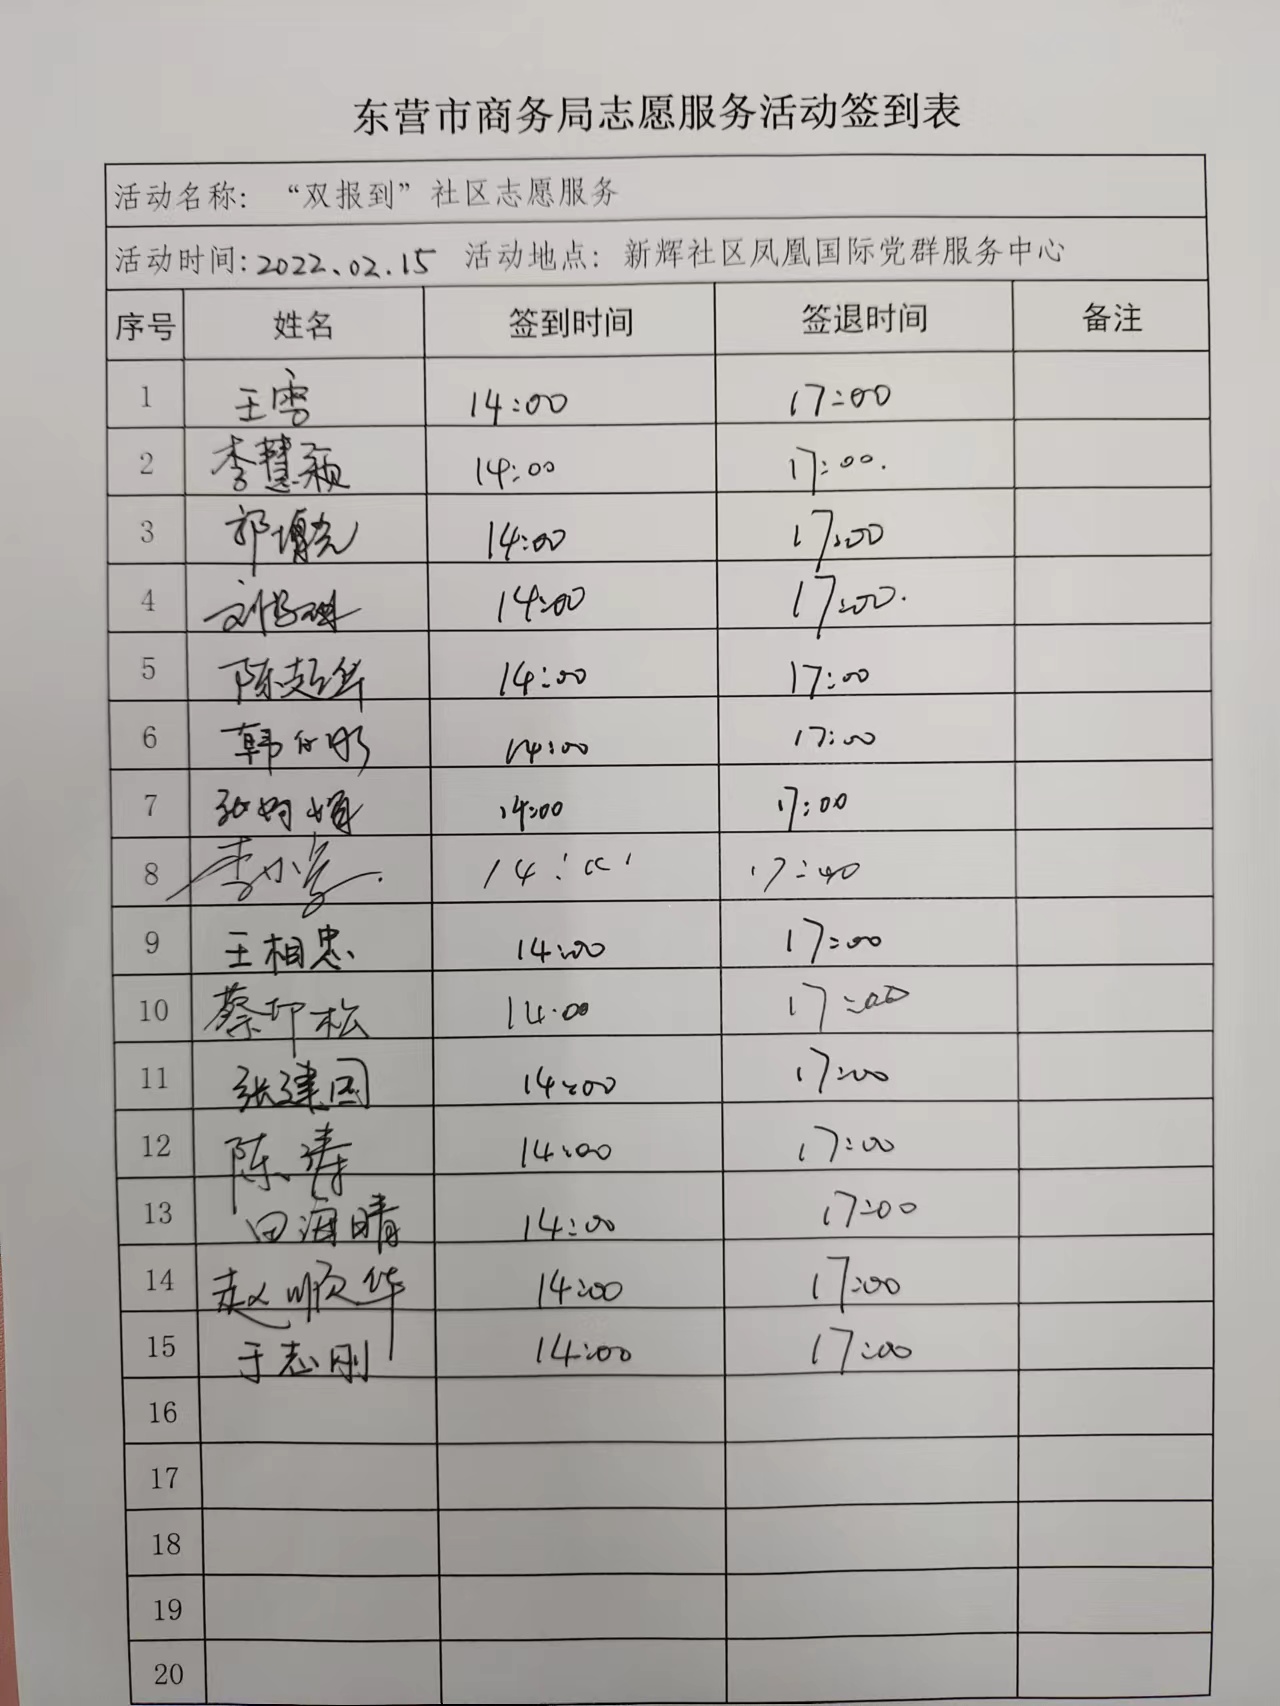 东营市商务局志愿服务活动签到表
活动名称：“双报到”社区志愿服务
活动时间：2022.02.15 活动地点：新辉社区凤凰国际党群服务中心
序号 姓名 签到时间 签退时间 备注
1 王雪 14:00 17:00
2 李慧颖 14:00 17:00.
3 14:00 17:00
4 14:00 17:00.
5 陈超华 14:00 17:00
6 14:00 17:00
7 14:00 17:00
8 17:00
9 王相忠 14:00 17:00
10 蔡印松 14:00 17:00
11 张建国 14:00 17:00
12 陈涛 14:00 17:00
13 田海晴 14:00 17:00
14 赵顺华 14:00 17:00
15 于志刚 14:00 17:00
16
17
18
19
20